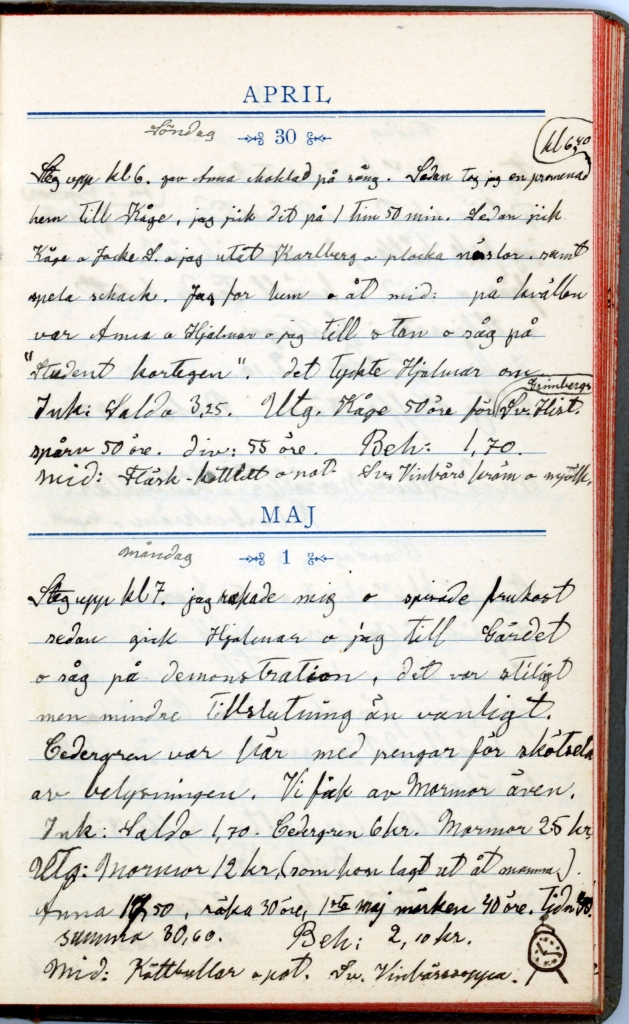 APRIL
Söndag 30 kl 6,40
Steg upp kl 6. gav Anna choklad på säng. Sedan tog jag en promenad
hem till Kåge, jag gick dit på 1 tim 50 min. Sedan gick
Kåge o Jocke S. o jag utåt Karlberg o plocka nässlor. samt
spela schack. Jag for hem o åt mid: på kvällen
var Anna o Hjalmar o jag till stan o såg på
"Student kortegen". det tyckte Hjalmar om.
Ink: Saldo 3,25. Utg. Kåge 50 öre för Grimbergs Sv. Hist.
spårv 50 öre. div: 55 öre. Beh: 1,70.
Mid: Fläsk-kotlett o pot. Sv. Vinbärs kräm o mjölk.
MAJ
måndag 1
Steg upp kl 7. jag rakade mig o spisade frukost
sedan gick Hjalmar o jag till Gärdet
o såg på demonstration, det var stiligt
men mindre tillslutning än vanligt.
Cedergren var här med pengar för skötseln
av belysningen. Vi fick av Mormor även.
Ink: Saldo 1,70. Cedergren 6 kr. Mormor 25 kr,
Utg: Mormor 12 kr, (som hon lagt ut åt mamma).
Anna 50, räka 30 öre, 1sta maj märken 40 öre. tidn
summa 30,60. Beh: 2,10 kr.
Mid: Köttbullar o pot. Sv. Vinbärssoppa.